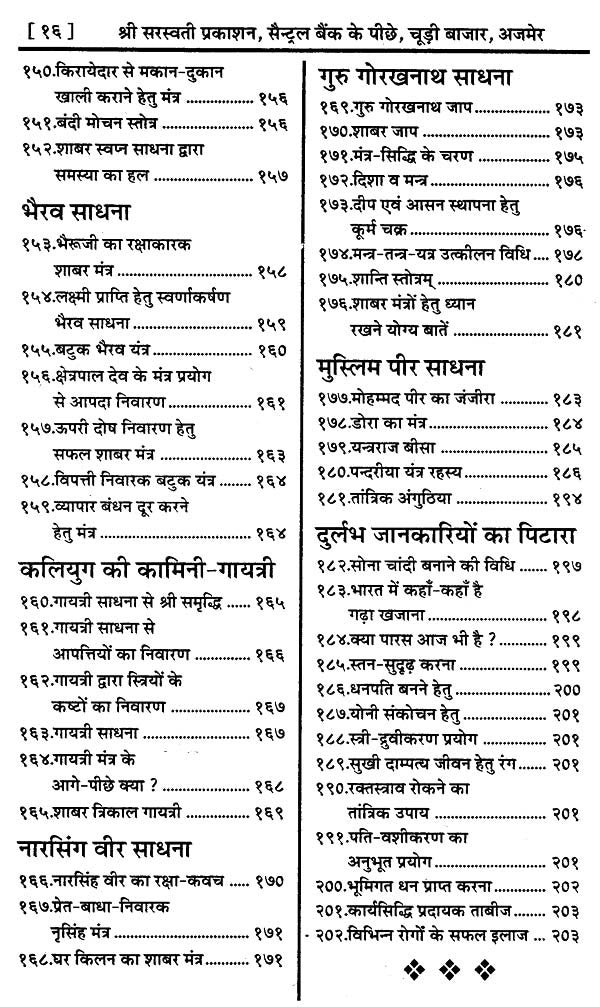 [ १६ ] श्री सरस्वती प्रकाशन, सैन्ट्रल बैंक के पीछे, चूड़ी बाजार, अजमेर
१५०.किरायेदार से मकान-दुकान
खाली कराने हेतु मंत्र ................ १५६
१५१.बंदी मोचन स्तोत्र .................. १५६
१५२.शाबर स्वप्न साधना द्वारा
समस्या का हल ..................... १५७
भैरव साधना
१५३.भैरूजी का रक्षाकारक
शाबर मंत्र ........................... १५८
१५४.लक्ष्मी प्राप्ति हेतु स्वर्णाकर्षण
भैरव साधना ........................ १५९
१५५.बटुक भैरव यंत्र ..................... १६०
१५६.क्षेत्रपाल देव के मंत्र प्रयोग
से आपदा निवारण ................. १६१
१५७.ऊपरी दोष निवारण हेतु
सफल शाबर मंत्र ................... १६३
१५८.विपत्ती निवारक बटुक यंत्र ........ १६४
१५९.व्यापार बंधन दूर करने
हेतु मंत्र .............................. १६४
कलियुग की कामिनी-गायत्री
१६०.गायत्री साधना से श्री समृद्धि ...... १६५
१६१.गायत्री साधना से
आपत्तियों का निवारण ............. १६६
१६२.गायत्री द्वारा स्त्रियों के
कष्टों का निवारण .................. १६७
१६३.गायत्री साधना ...................... १६७
१६४.गायत्री मंत्र के
आगे-पीछे क्या ? ................... १६८
१६५.शाबर त्रिकाल गायत्री .............. १६९
नारसिंग वीर साधना
१६६.नारसिंह वीर का रक्षा-कवच ..... १७०
१६७.प्रेत-बाधा-निवारक
नृसिंह मंत्र ........................... १७१
१६८.घर किलन का शाबर मंत्र ........... १७१
गुरु गोरखनाथ साधना
१६९.गुरु गोरखनाथ जाप ................. १७३
१७०.शाबर जाप ........................... १७३
१७१.मंत्र-सिद्धि के चरण ................ १७५
१७२.दिशा व मन्त्र ........................ १७६
१७३.दीप एवं आसन स्थापना हेतु
कूर्म चक्र .............................. १७६
१७४.मन्त्र-तन्त्र-यत्र उत्कीलन विधि .... १७८
१७५.शान्ति स्तोत्रम् ....................... १८०
१७६.शाबर मंत्रों हेतु ध्यान
रखने योग्य बातें .................... १८१
मुस्लिम पीर साधना
१७७.मोहम्मद पीर का जंजीरा ........... १८३
१७८.डोरा का मंत्र ........................ १८४
१७९.यन्त्रराज बीसा ...................... १८५
१८०.पन्दरीया यंत्र रहस्य ................. १८६
१८१.तांत्रिक अंगुठिया ................... १९४
दुर्लभ जानकारियों का पिटारा
१८२.सोना चांदी बनाने की विधि ....... १९७
१८३.भारत में कहाँ-कहाँ है
गढ़ा खजाना ........................ १९८
१८४.क्या पारस आज भी है ? ........... १९९
१८५.स्तन-सुदृढ़ करना ................... १९९
१८६.धनपति बनने हेतु ................... २००
१८७.योनी संकोचन हेतु .................. २०१
१८८.स्त्री-द्रुवीकरण प्रयोग .............. २०१
१८९.सुखी दाम्पत्य जीवन हेतु रंग ....... २०१
१९०.रक्तस्त्राव रोकने का
तांत्रिक उपाय ....................... २०१
१९१.पति-वशीकरण का
अनुभूत प्रयोग ....................... २०१
२००.भूमिगत धन प्राप्त करना ............ २०२
२०१.कार्यसिद्धि प्रदायक ताबीज ........ २०३
२०२.विभिन्न रोगों के सफल इलाज ... २०३